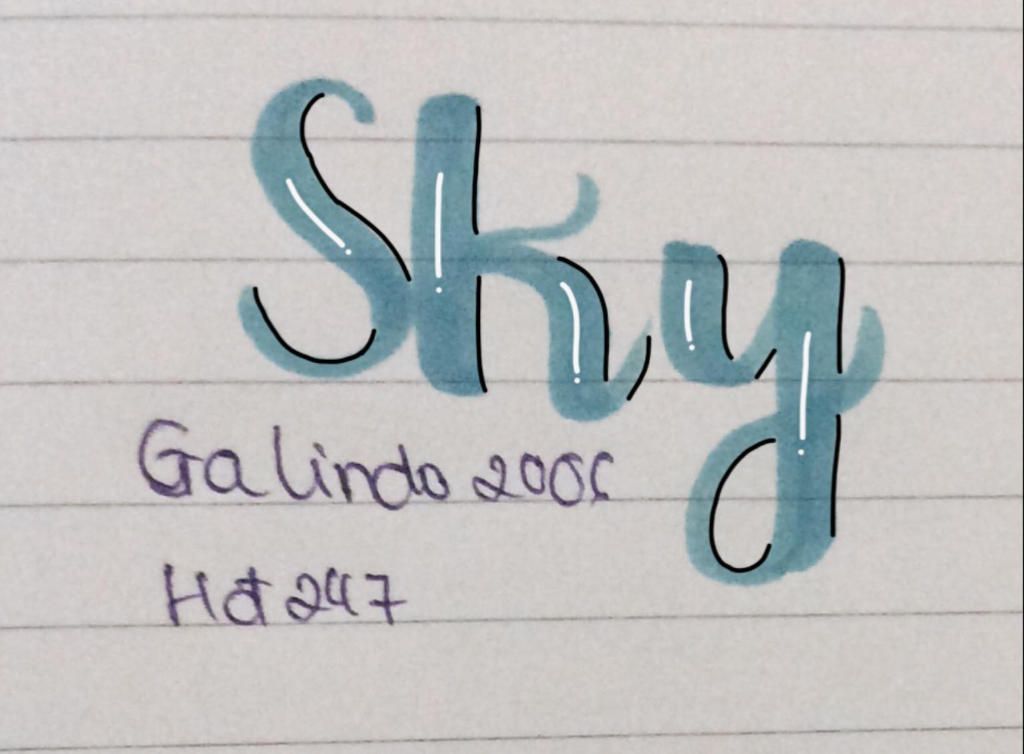 Sky
Galindo 2006
Hot 247